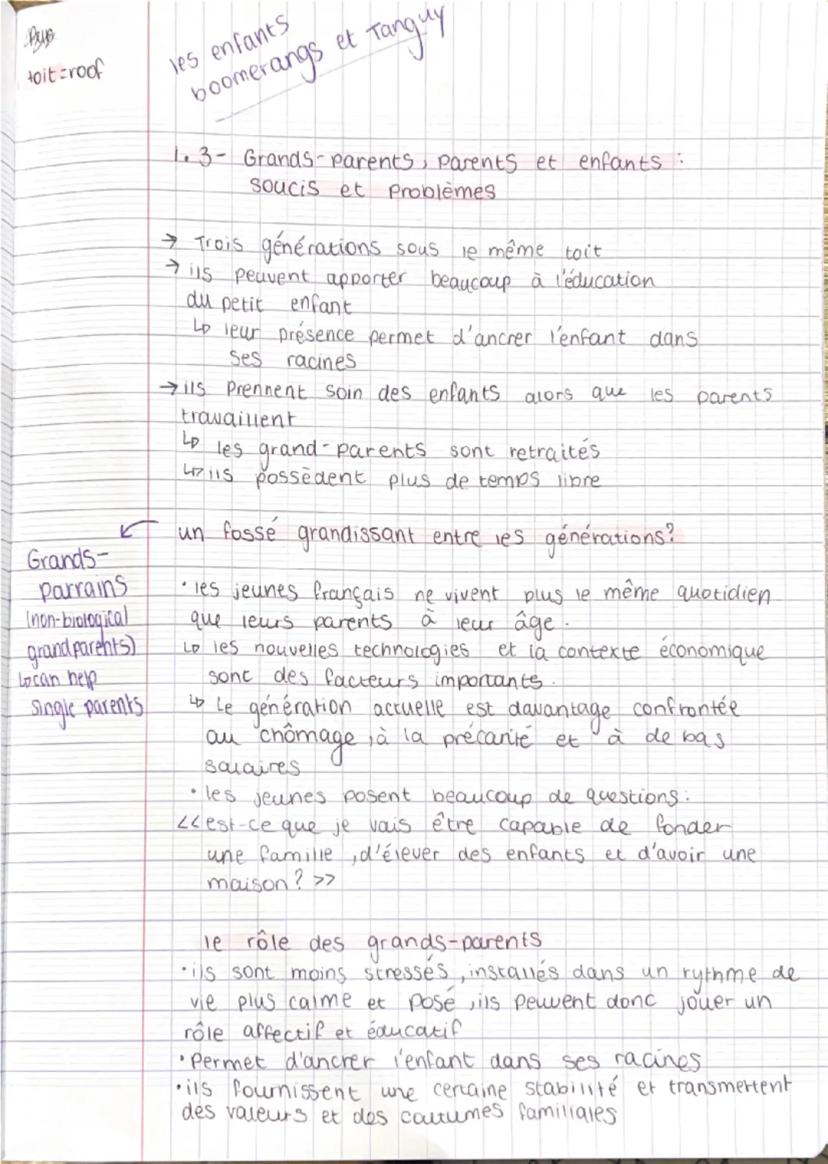 toit = roof
les enfants
boomerangs et Tanguy
1.3- Grands-parents, parents et enfants :
soucis et problèmes
→ Trois générations sous le même toit
→ ils peuvent apporter beaucoup à l'éducation
du petit enfant
↳ leur présence permet d'ancrer l'enfant dans
ses racines
→ ils prennent soin des enfants alors que les parents
travaillent
↳ les grand-parents sont retraités
↳ ils possèdent plus de temps libre
un fossé grandissant entre les générations?
Grands-
parrains
(non-biological
grandparents)
↳ can help
single parents
• les jeunes français ne vivent plus le même quotidien
que leurs parents à leur âge.
↳ les nouvelles technologies et la contexte économique
sont des facteurs importants.
↳ Le génération actuelle est davantage confrontée
au chômage, à la précarité et à de bas
salaires
• les jeunes posent beaucoup de questions:
<<est-ce que je vais être capable de fonder
une famille, d'élever des enfants et d'avoir une
maison? >>
le rôle des grands-parents
• ils sont moins stressés, installés dans un rythme de
vie plus calme et posé, ils peuvent donc jouer un
rôle affectif et éducatif
• Permet d'ancrer l'enfant dans ses racines
• ils fournissent une certaine stabilité et transmettent
des valeurs et des coutumes familiales